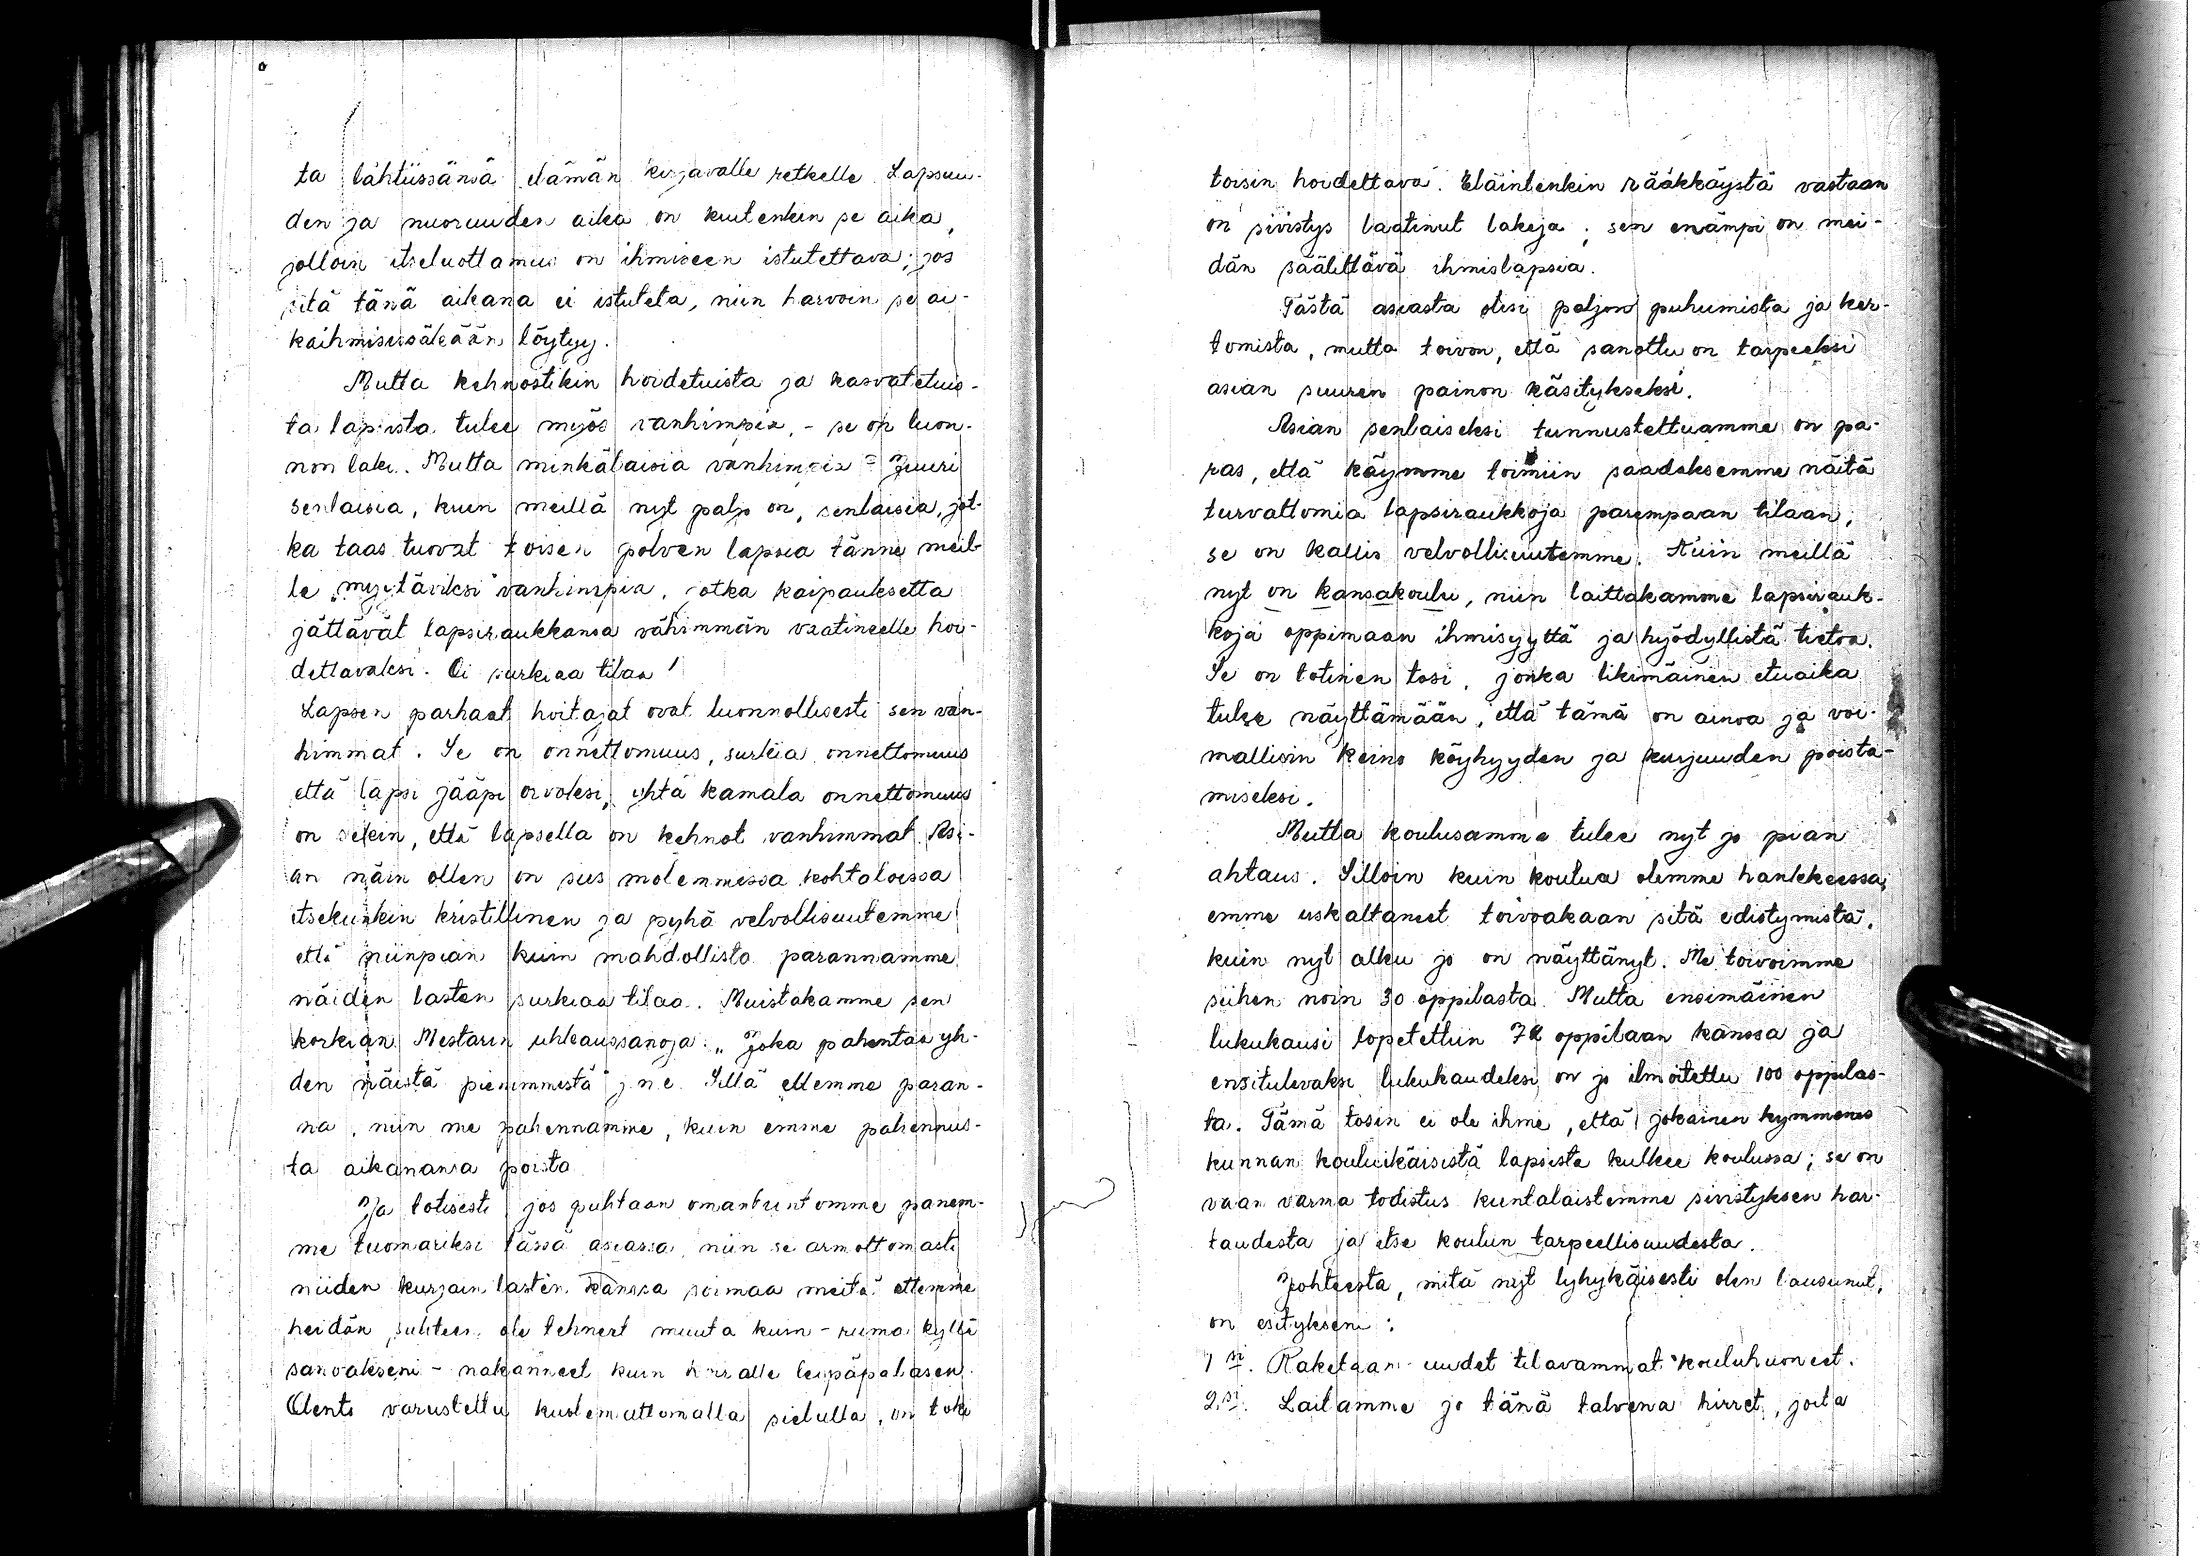 ta lähtiissänsä elämän kirjavalle retkelle. Lapsuu-
den ja nuoruuden aika on kuitenkin se aika,
jolloin itseluottamus on ihmiseen istutettava; jos
sitä tänä aikana ei istuteta, niin harvoin se ai-
kaihmisessäkään löytyy.
Mutta kehnostikin hoidetuista ja kasvatetuis-
ta lapsista tulee myös vanhimpia, - se on luon-
non laki. Mutta minkälaisia vanhimpia? Juuri
senlaisia, kuin meillä nyt paljo on, senlaisia, jot-
ka taas tuovat toisen polven lapsia tänne meil-
le „myytäviksi" vanhimpia, jotka kaipauksetta
jättävät lapsiraukkansa vähimmän vaatineelle hoi-
dettavaksi. Oi surkiaa tilaa!
Lapsen parhaat hoitajat ovat luonnollisesti sen van-
himmat. Se on onnettomuus, surkia onnettomuus
että lapsi jääpi orvoksi, yhtä kamala onnettomuus
on sekin, että lapsella on kehnot vanhimmat. Asi-
an näin ollen on siis molemmissa kohtaloissa
itsekunkin kristillinen ja pyhä velvollisuutemme
että niinpian kuin mahdollista parannamme
näiden lasten surkiaa tilaa. Muistakamme sen
korkian Mestarin uhkaussanoja: „Joka pahentaa yh-
den näistä pienimmistä" j. n. e. Sillä ellemme paran-
na, niin me pahennamme, kuin emme pahennus-
ta aikanansa poista
Ja totisesti jos puhtaan omantuntomme panem-
me tuomariksi tässä asiassa, niin se armottomasti
niiden kurjain lasten kanssa soimaa meitä ettemme
heidän suhteen ole tehneet muuta kuin - ruma kyllä
sanoakseni - nakanneet kuin koiralle leipäpalasen.
Olento varustettu kuolemattomalla sielulla, on toki
toisin hoidettava. Eläintenkin rääkkäystä vastaan
on sivistys laatinut lakeja; sen enämpi on mei-
dän säälittävä ihmislapsia.
Tästä asiasta olisi paljon puhumista ja ker-
tomista, mutta toivon, että sanottu on tarpeeksi
asian suuren painon käsitykseksi.
Asian senlaiseksi tunnustettuamme on pa-
ras, että käymme toimiin saadaksemme näitä
turvattomia lapsiraukkoja parempaan tilaan;
se on kallis velvollisuutemme. Kuin meillä
nyt on kansakoulu, niin laittakamme lapsirauk-
koja oppimaan ihmisyyttä ja hyödyllistä tietoa.
Se on totinen tosi, jonka likimäinen etuaika
tulee näyttämään, että tämä on ainoa ja voi-
mallisin keino köyhyyden ja kurjuuden poista-
miseksi.
Mutta koulusamme tulee nyt jo pian
ahtaus. Silloin kuin koulua olimme hankkeessa,
emme uskaltaneet toivoakaan sitä edistymistä,
kuin nyt alku jo on näyttänyt. Me toivoimme
siihen noin 30 oppilasta. Mutta ensimäinen
lukukausi lopetettiin 72 oppilaan kanssa ja
ensitulevaksi lukukaudeksi on jo ilmoitettu 100 oppilas-
ta. Tämä tosin ei ole ihme, että jokainen kymmenes
kunnan kouluikäisistä lapsista kulkee koulussa; se on
vaan varma todistus kuntalaistemme sivistyksen har-
taudesta ja itse koulun tarpeellisuudesta.
Johteesta, mitä nyt lyhykäisesti olen lausunut,
on esitykseni:
1 si. Raketaan uudet tilavammat kouluhuoneet.
2 si. Laitamme jo tänä talvena hirret, joita